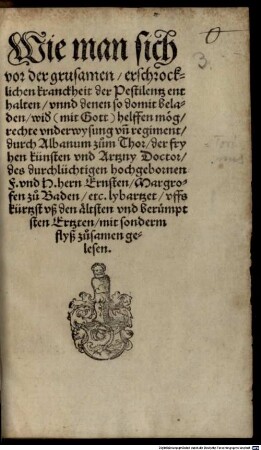 Wie man sich
vor der grusamen / erschrock-
lichen kranckheit der Pestilentz ent
halten / vnnd denen so domit bela-
den / wid (mit Gott) helffen mög /
rechte vnderwysung vñ regiment /
durch Albanum zům Thor / der fry
hen künsten vnd Artzny Doctor /
des durchlüchtigen hochgebornen
F. vnd H. hern Ernsten / Margro-
fen zů Baden / etc. lybartzet / vffs
kürtzst vß den ältsten vnd berümpt
sten Ertzten / mit sonderm
flyß zůsamen ge-
lesen.
3.